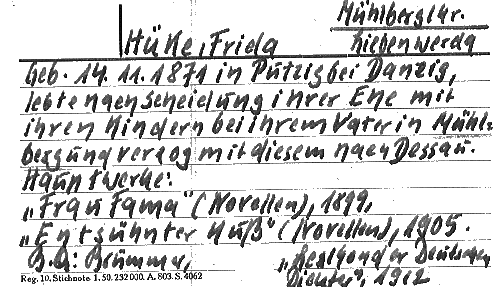 Mühlberg/Kr.
Liebenwerda
Hüke, Frida
Geb. 14. 11. 1871 in Putzig bei Danzig,
lebte nach Scheidung ihrer Ehe mit
ihren Kindern bei ihrem Vater in Mühl-
berg und verzog mit diesem nach Dessau.
Hauptwerke:
„Frau Fama" (Novellen), 1899,
„Entsühnter Kuß" (Novellen), 1905.
Brümmer, „ der Deutschen
Dichter", 1912
Reg. 10. Stichnote 1. 50. 232000. A. 803. S. 4062